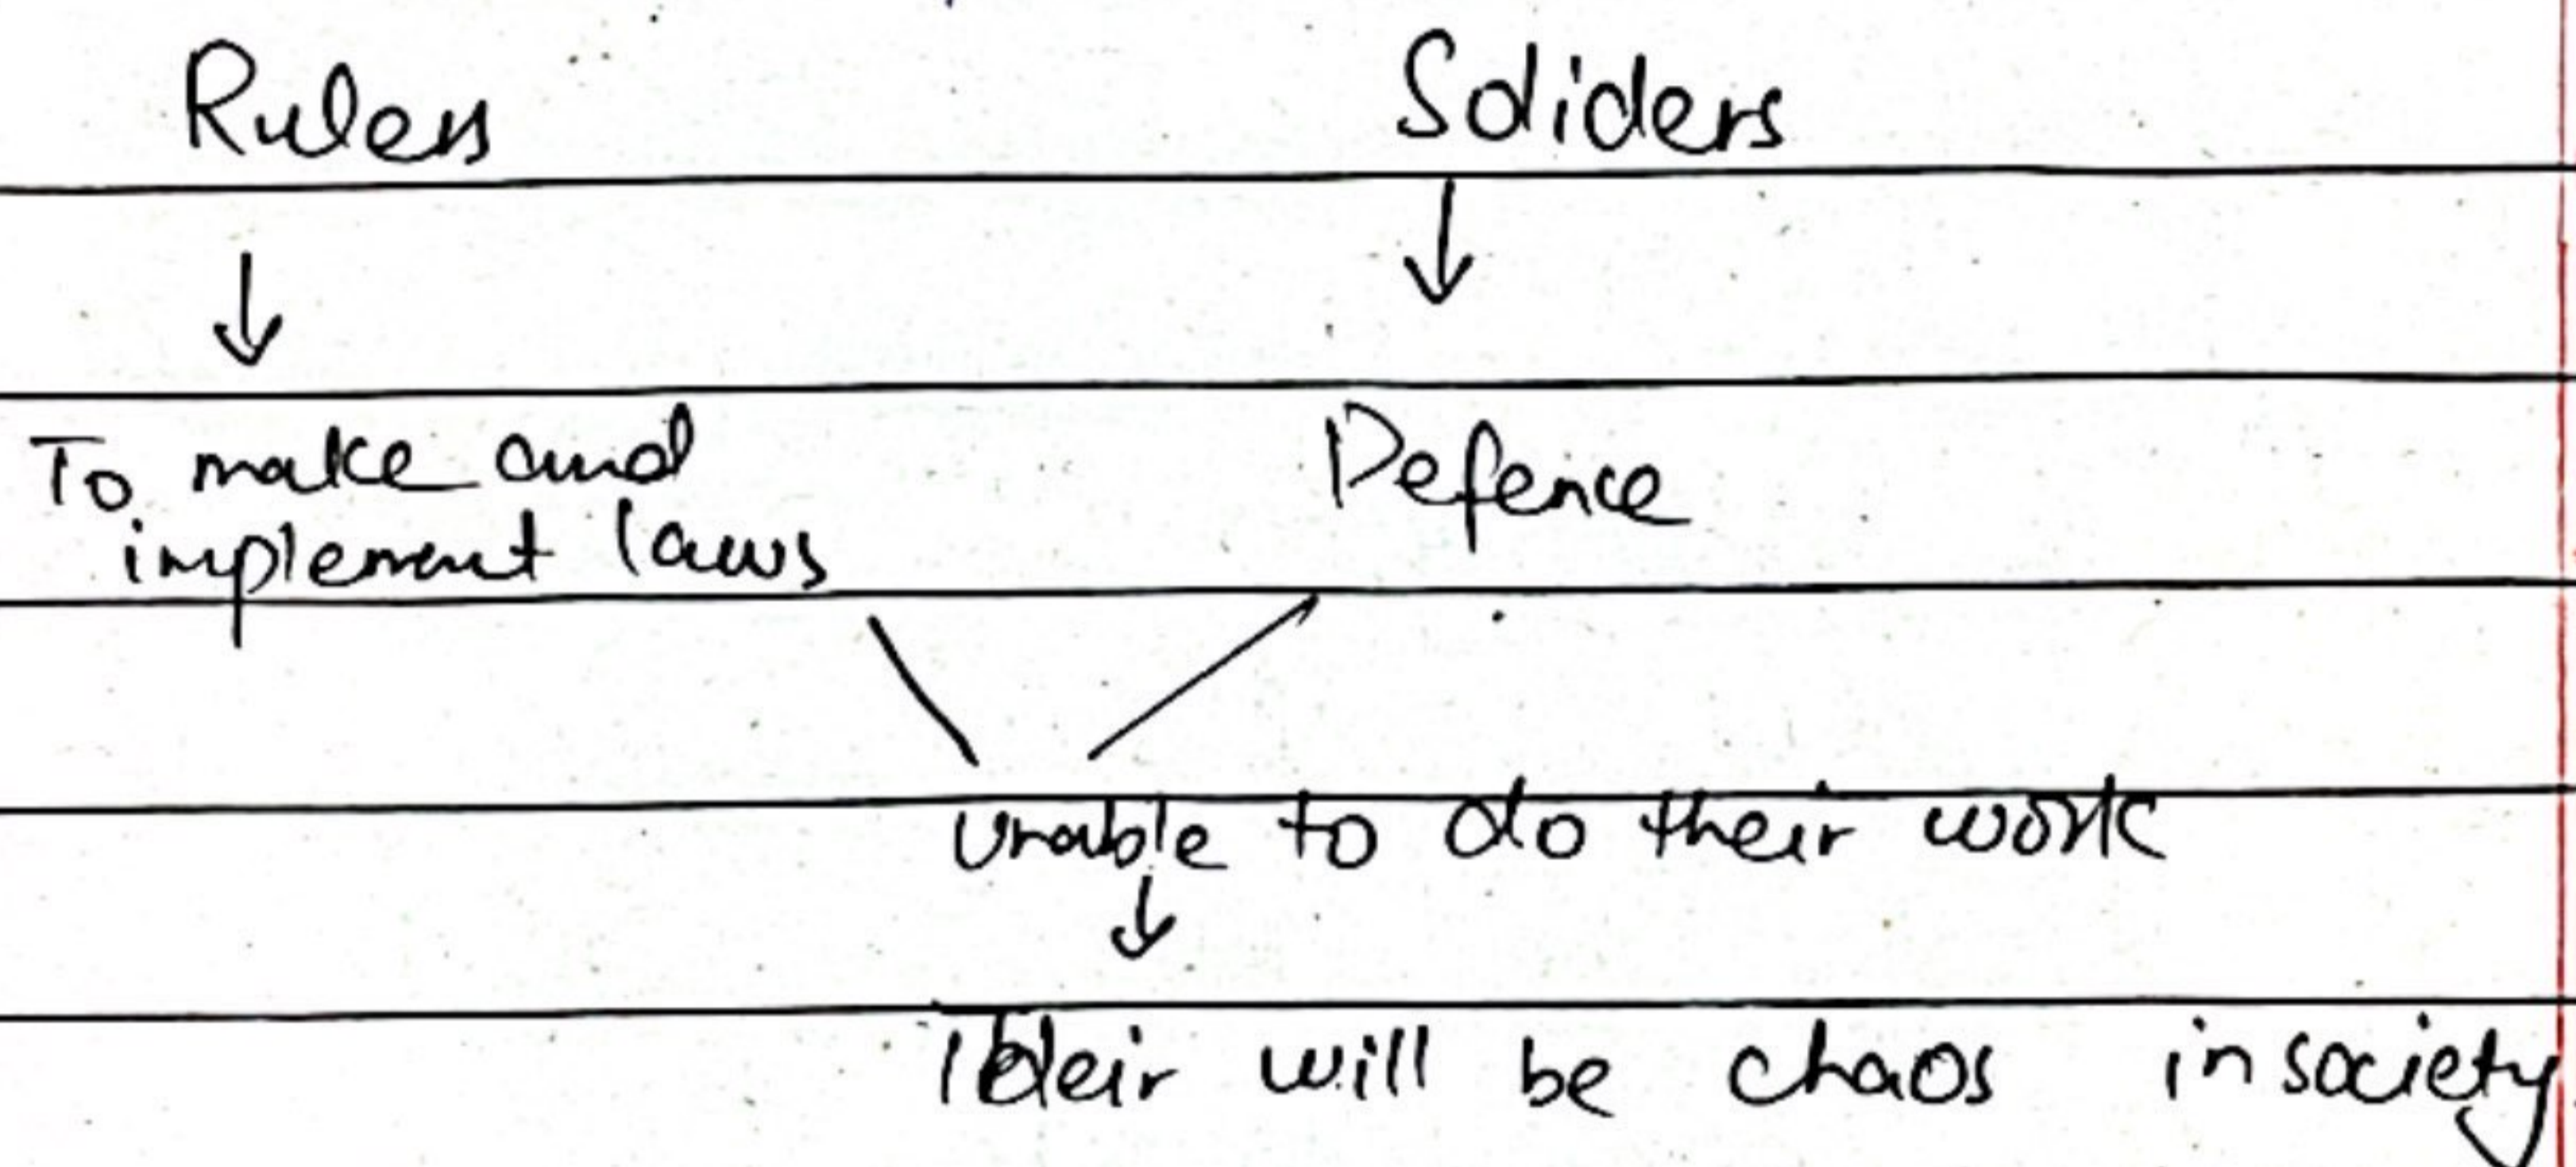 Rulers Soliders
To make and Defence
implement laws
unable to do their work
Their will be chaos in society